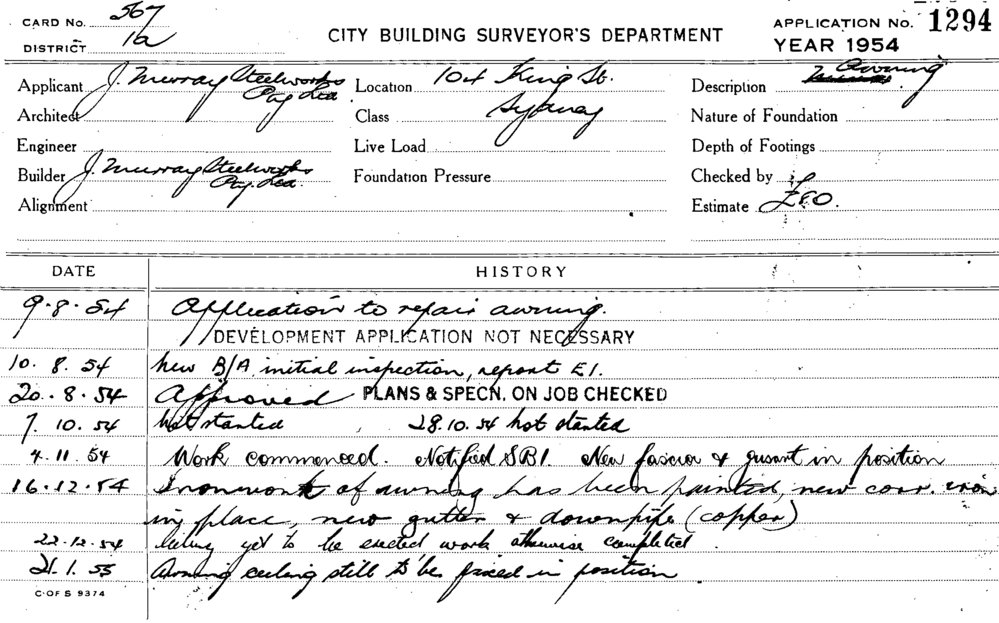 CARD No. 567
DISTRICT 1a
CITY BUILDING SURVEYOR'S DEPARTMENT
APPLICATION No. 1294
YEAR 1954
Applicant J. Murray Steelworks Pty. Ltd.
Location 104 King St. Sydney
Description Awning
Architect
Class
Nature of Foundation
Engineer
Live Load
Depth of Footings
Builder J. Murray Steelworks Pty. Ltd.
Foundation Pressure
Checked by
Alignment
Estimate £80.
DATE HISTORY
9.8.54 Application to repair awning.
DEVELOPMENT APPLICATION NOT NECESSARY
10.8.54 New B/A initial inspection, report E1.
20.8.54 Approved PLANS & SPECN. ON JOB CHECKED
7.10.54 Not started 28.10.54 Not started
4.11.54 Work commenced. Notified SB1. New fascia & gusset in position
16.12.54 Ironwork of awning has been painted, new corr. iron
in place, new gutter & downpipe (copper)
22.12.54 Ceiling yet to be erected work otherwise completed.
21.1.55 Awning ceiling still to be fixed in position
C OF S 9374